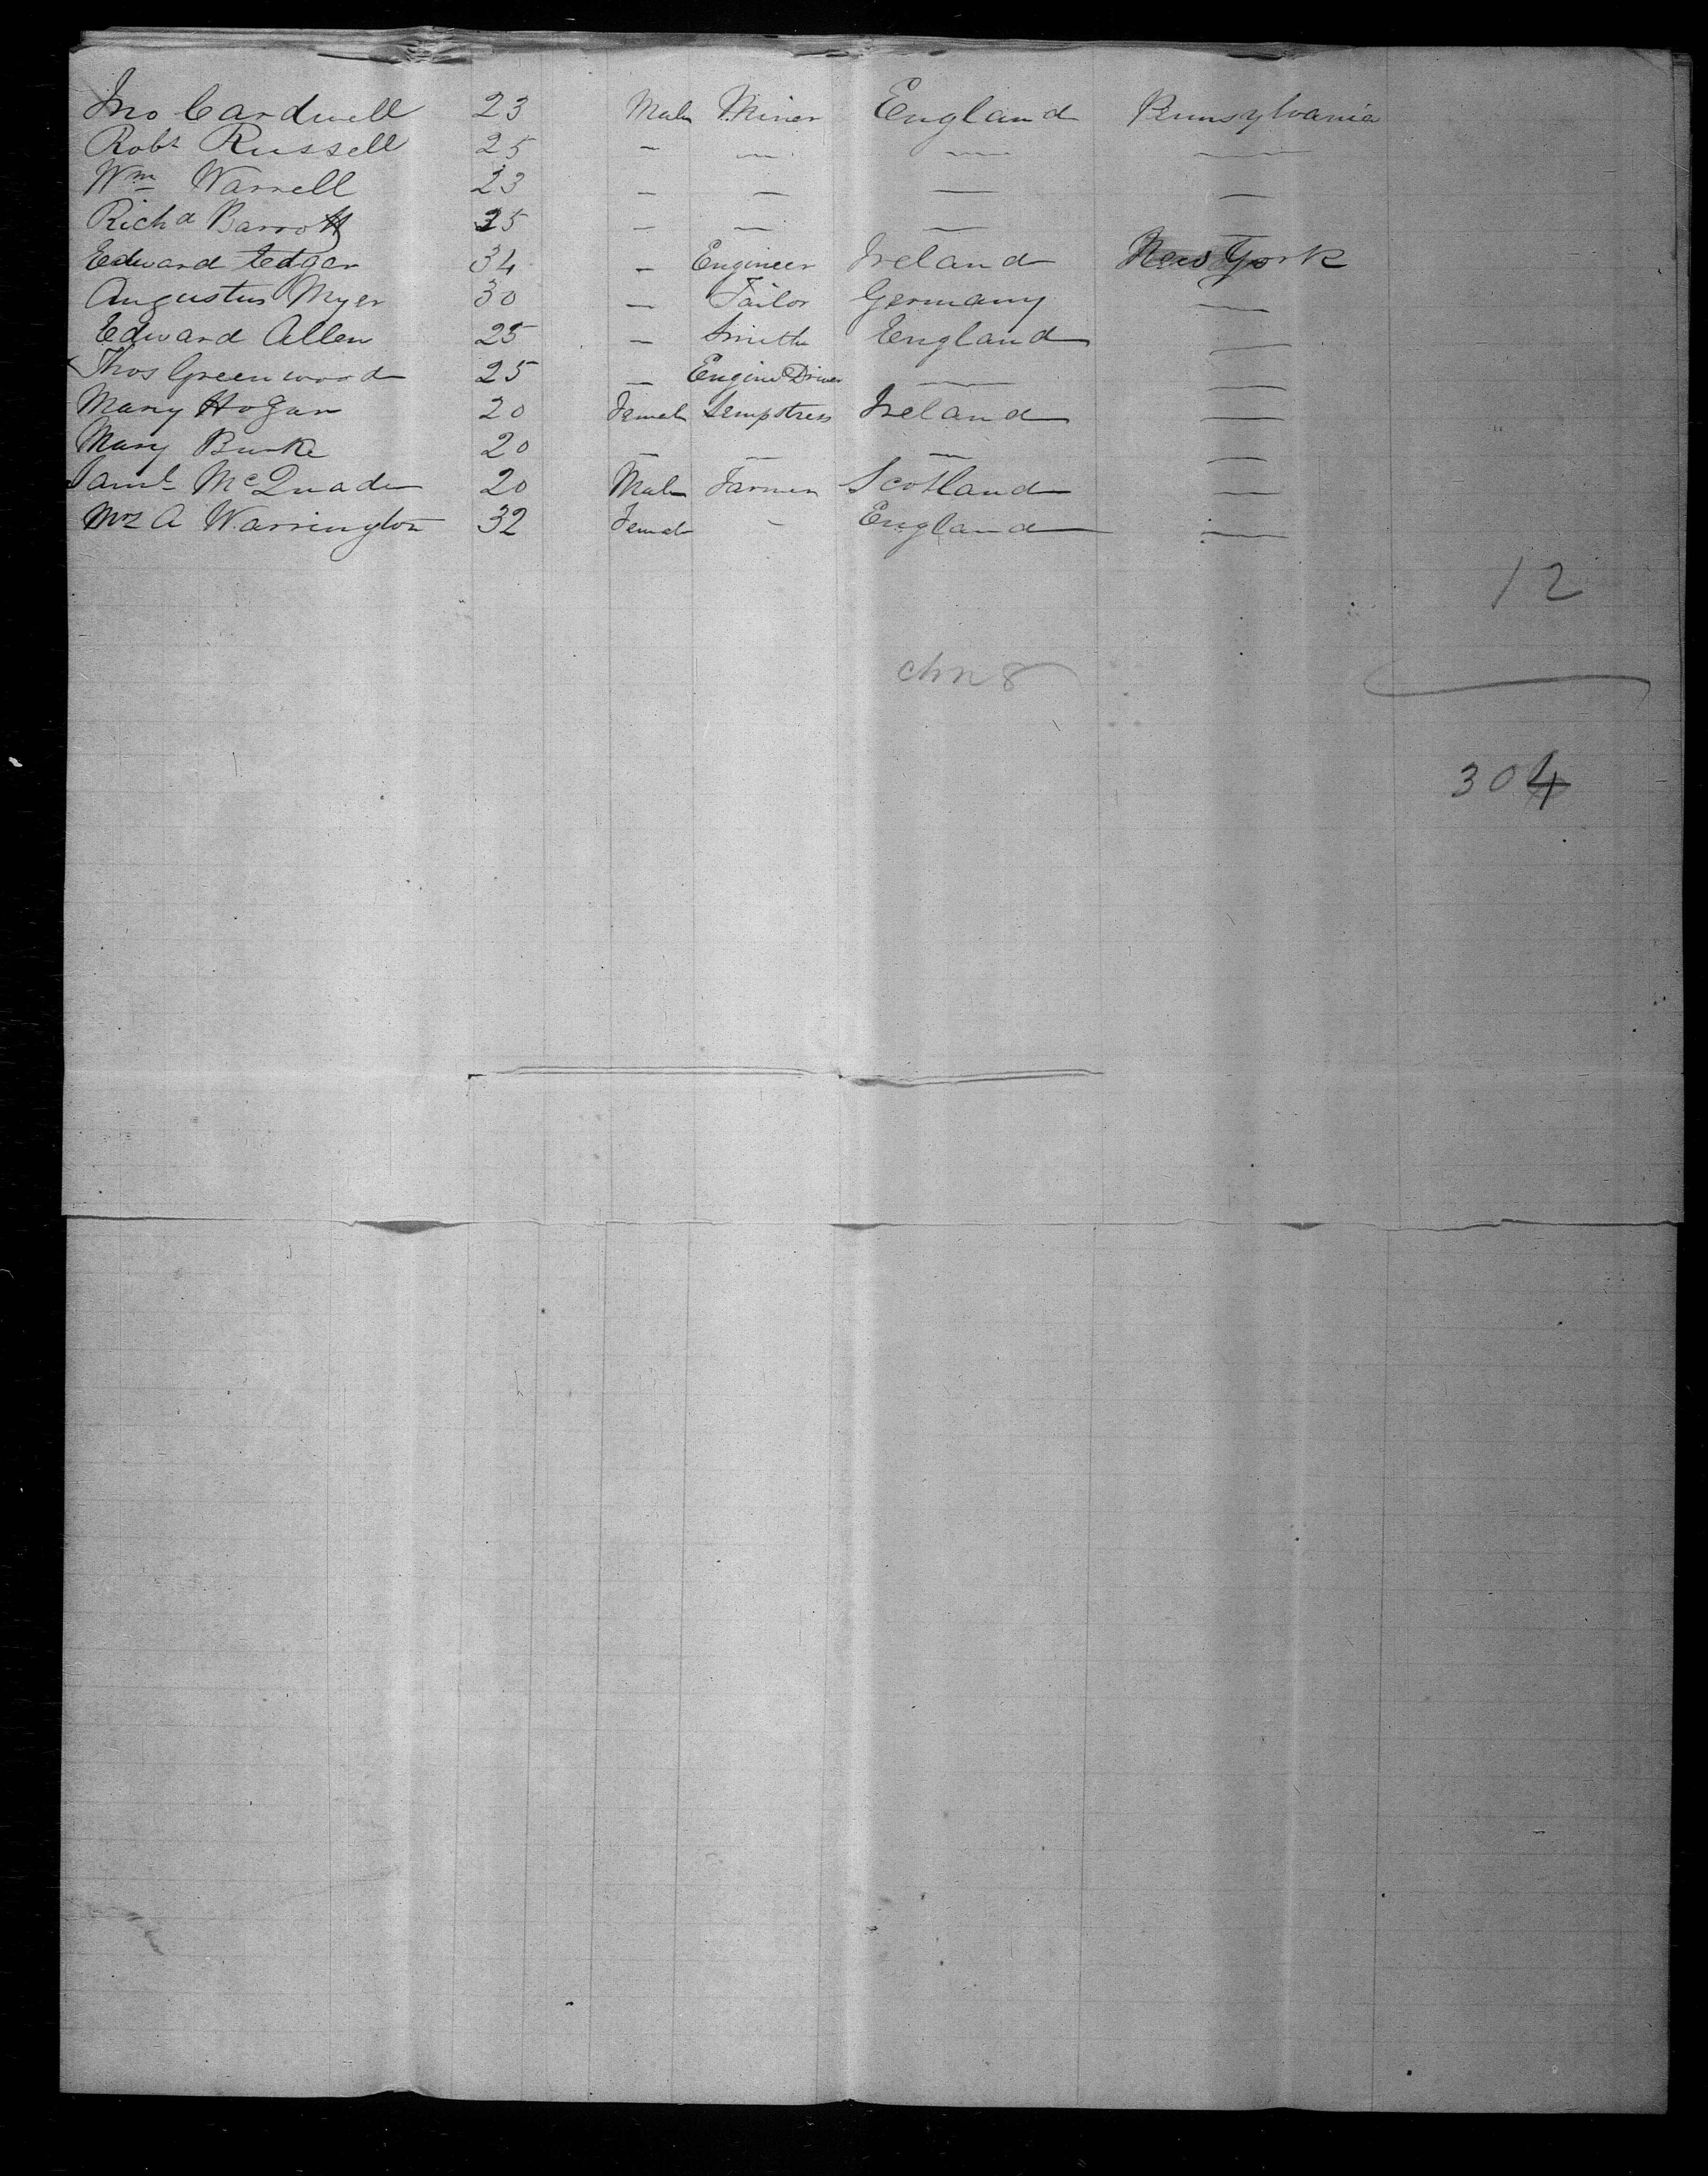 Jno Cardwell 23 Male Miner England Pennsylvania
Robt Russell 25 — — — —
Wm Warrell 23 — — — —
Richd Barrott 25 — — — —
Edward Edgar 34 — Engineer Ireland New York
Augustus Myer 30 — Tailor Germany —
Edward Allen 25 — Smith England —
Thos Greenwood 25 — Engine Driver — —
Mary Hogan 20 Female Sempstress Ireland —
Mary Burke 20 — — — —
Saml McQuade 20 Male Farmer Scotland —
Mrs A Warrington 32 Female - England —
12
304